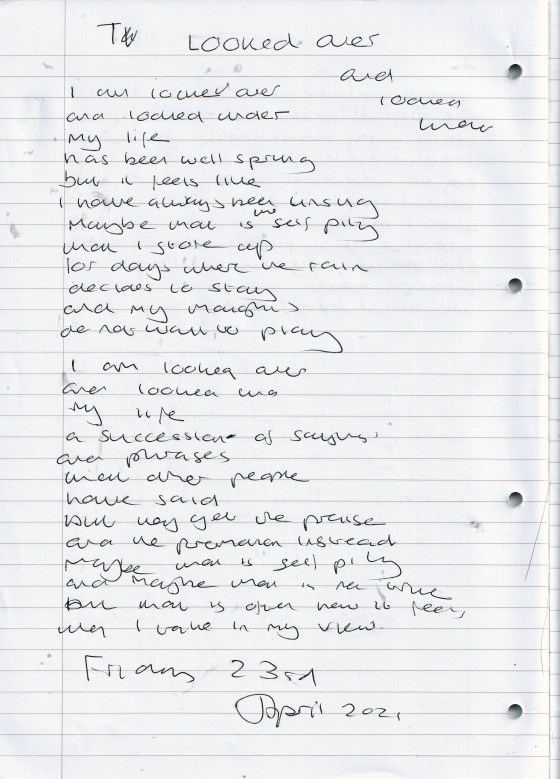 Looked over
and
looked
under
I am looked over
and looked under
My life
has been well sprung
but it feels like
I have always been unsung
Maybe that is the self pity
that I store up
for days where the rain
decides to stay
and my thoughts
do not want to play
I am looked over
and looked
My life
a succession of sayings
and phrases
that other people
have said
But they get the praise
and the promotion instead
Maybe that is self pity
and maybe that is not true
But that is often how it feels
when I in my view
Friday 23rd
April 2021